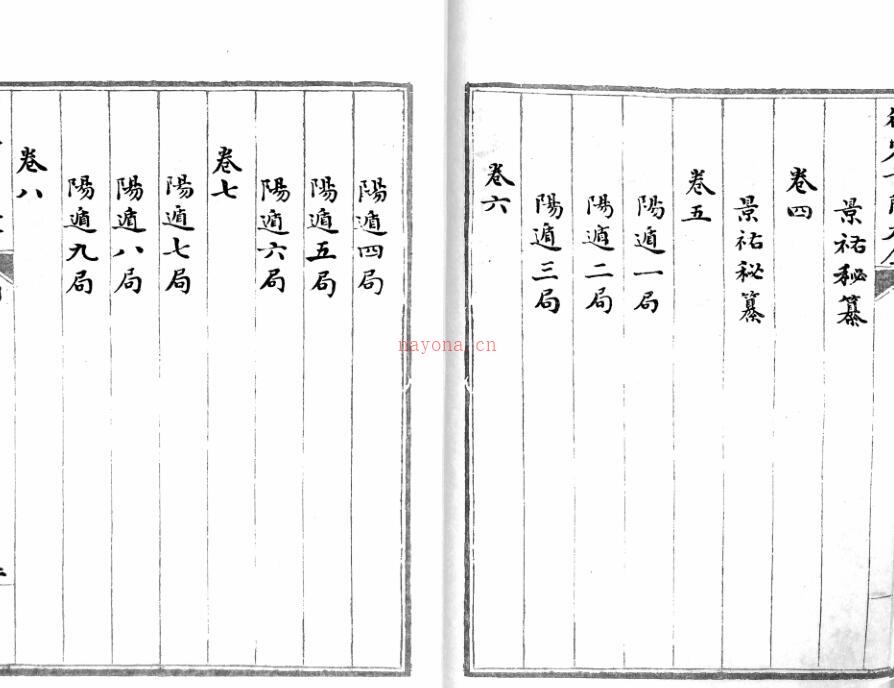 景祐秘纂
卷四
景祐秘纂
卷五
陽遁一局
陽遁二局
陽遁三局
卷六
陽遁四局
陽遁五局
陽遁六局
卷七
陽遁七局
陽遁八局
陽遁九局
卷八
nayona.cn